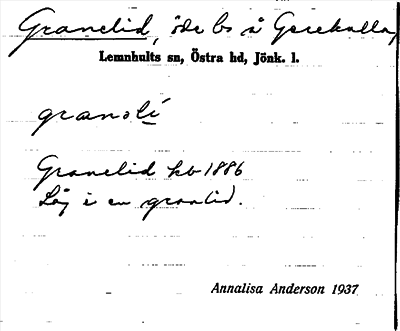 Granelid, öde bs å Gerekulla,
Lemnhults sn, Östra hd, Jönk. l.
granəlí
Granelid kb 1886
Låg i en granlid.
Annalisa Anderson 1937